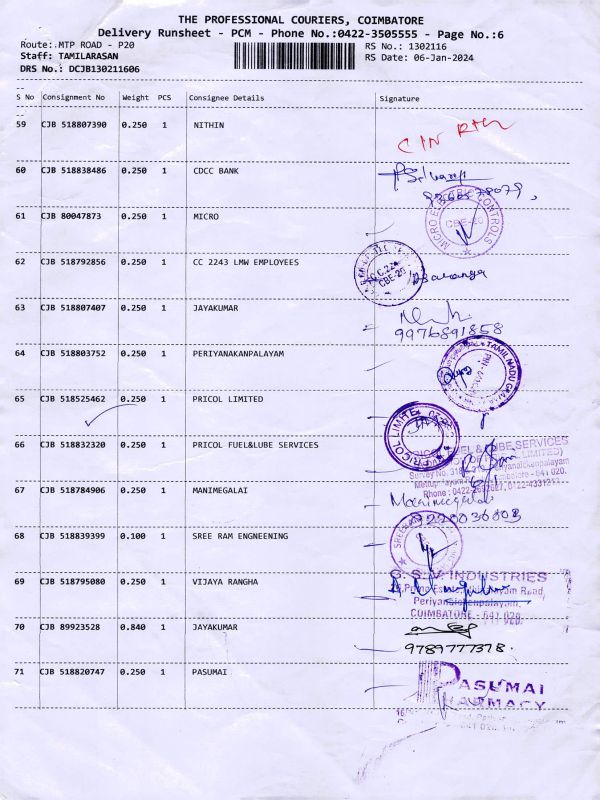 THE PROFESSIONAL COURIERS, COIMBATORE
Delivery Runsheet - PCM - Phone No.:0422-3505555 - Page No.:6
Route:.MTP ROAD - P20 RS No.: 1302116
Staff: TAMILARASAN RS Date: 06-Jan-2024
DRS No.: DCJB130211606
S No Consignment No Weight PCS Consignee Details Signature
59 CJB 518807390 0.250 1 NITHIN
60 CJB 518838486 0.250 1 CDCC BANK
61 CJB 80047873 0.250 1 MICRO
CBE-20
62 CJB 518792856 0.250 1 CC 2243 LMW EMPLOYEES
CBE-20
63 CJB 518807407 0.250 1 JAYAKUMAR
9976891858
64 CJB 518803752 0.250 1 PERIYANAKANPALAYAM
TAMIL NADU
65 CJB 518525462 0.250 1 PRICOL LIMITED
PRICOL LIMITED
66 CJB 518832320 0.250 1 PRICOL FUEL&LUBE SERVICES
67 CJB 518784906 0.250 1 MANIMEGALAI
Manimegalai
68 CJB 518839399 0.100 1 SREE RAM ENGNEERING
69 CJB 518795080 0.250 1 VIJAYA RANGHA
INDUSTRIES
Periyanaickenpalayam,
COIMBATORE - 641 020.
70 CJB 89923528 0.840 1 JAYAKUMAR
9789777378.
71 CJB 518820747 0.250 1 PASUMAI
PASUMAI
PHARMACY